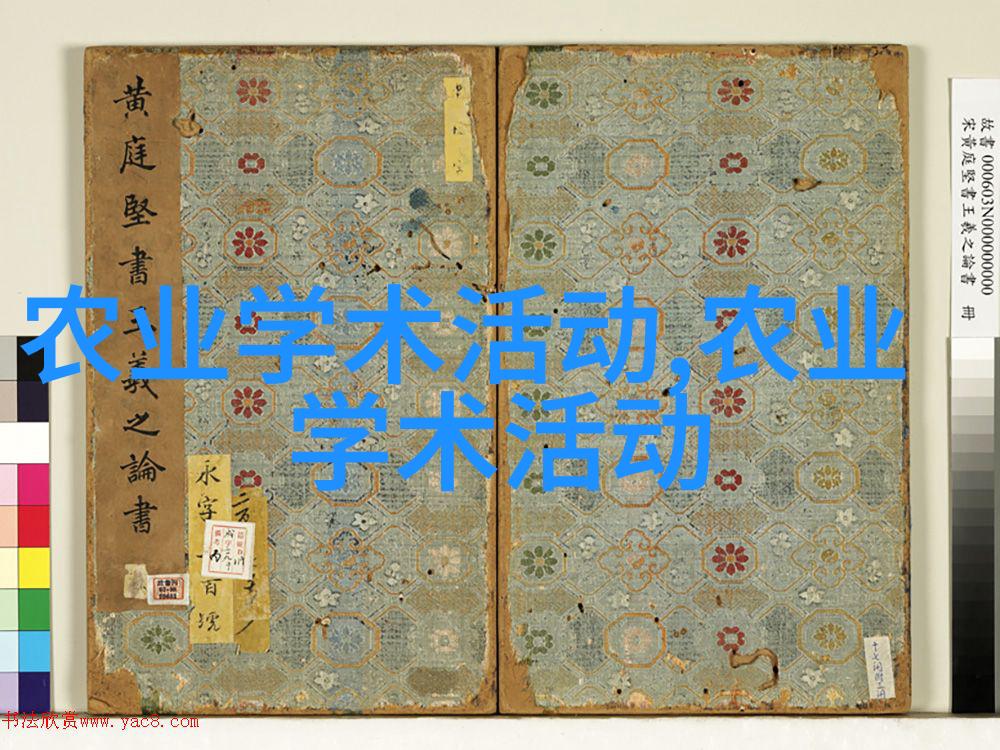 黄庭堅書王羲之論書
農业学术活动,农业
学术活动
永字
百號
故書 000603N000000000
宋黄庭堅書王羲之論書 冊
书法欣赏www.yac8.com